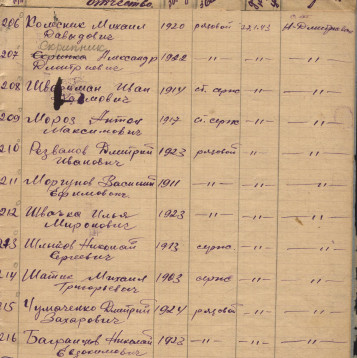 отчество
206 Колесник Михаил 1920 рядовой 22.1.43
Давидович
Скрипник
207 Александр 1922 -"- -"- -"-
Дмитриевич
208 Иван 1914 ст. серж -"- -"-
Ефимович
209 Мороз Антон 1917 ст. серж -"- -"-
Максимович
210 Резванов Дмитрий 1923 рядовой -"- -"-
Иванович
211 Моргунов Василий 1911 -"- -"- -"-
Ефимович
212 Швачка Илья 1923 -"- -"- -"-
Миронович
213 Николай 1913 серж -"- -"-
Сергеевич
214 Михаил 1903 серж -"- -"-
Григорьевич
215 Чумаченко Дмитрий 1924 рядовой -"- -"-
Захарович
216 Багранцев Николай 1923 -"- -"- -"-
Евдокимович